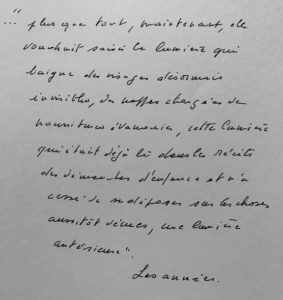 ..." plus que tout, maintenant, elle
voudrait saisir la lumière qui
baigne des visages désormais
invisibles, des nappes chargées de
nourritures évanouies, cette lumière
qui était déjà là dans les récits
des dimanches d'enfance et n'a
cessé de se déposer sur les choses
aussitôt vécues, une lumière
antérieure".
Les années.